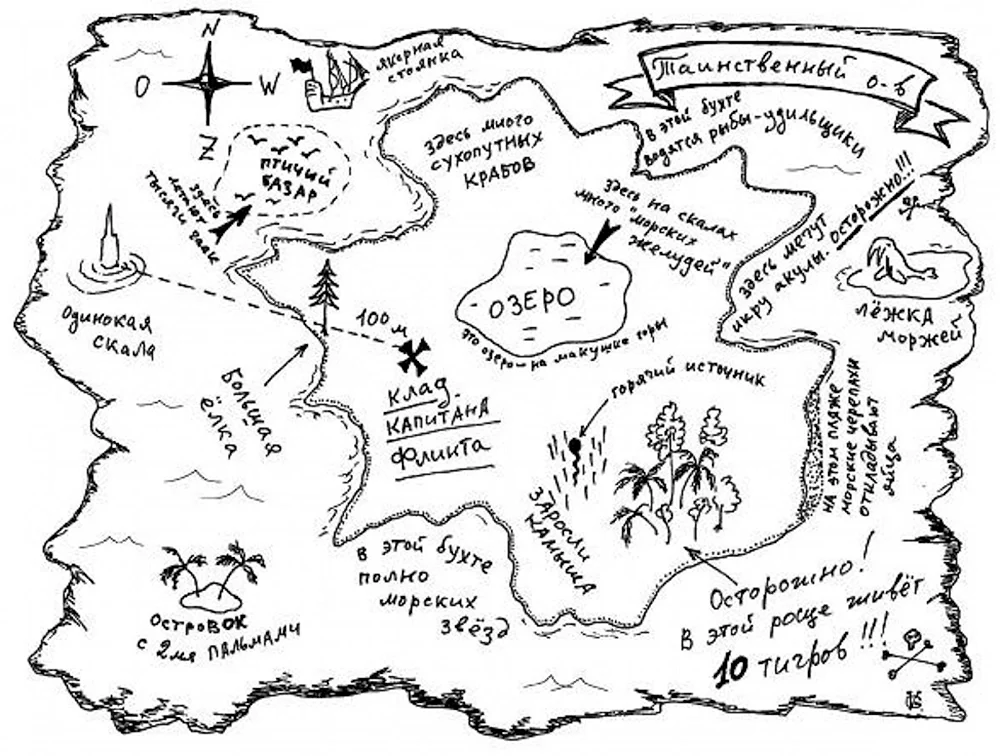 N
O W
Z
якорная
стоянка
Таинственный
о-в
В этой бухте
водятся рыбы-удильщики
здесь много
сухопутных
крабов
птичий
базар
здесь
летают
тысячи чаек
здесь на скалах
много "морских
желудей"
здесь мечут
икру акулы. осторожно!!!
лёжка
моржей
Одинокая
скала
100 м
озеро
это озеро на макушке горы
Большая
ёлка
Клад
капитана
Флинта
горячий источник
заросли
камыша
на этом пляже
морские черепахи
откладывают
яйца
в этой бухте
полно
морских
звёзд
островок
с 2мя пальмами
Осторожно!
В этой роще живёт
10 тигров!!!